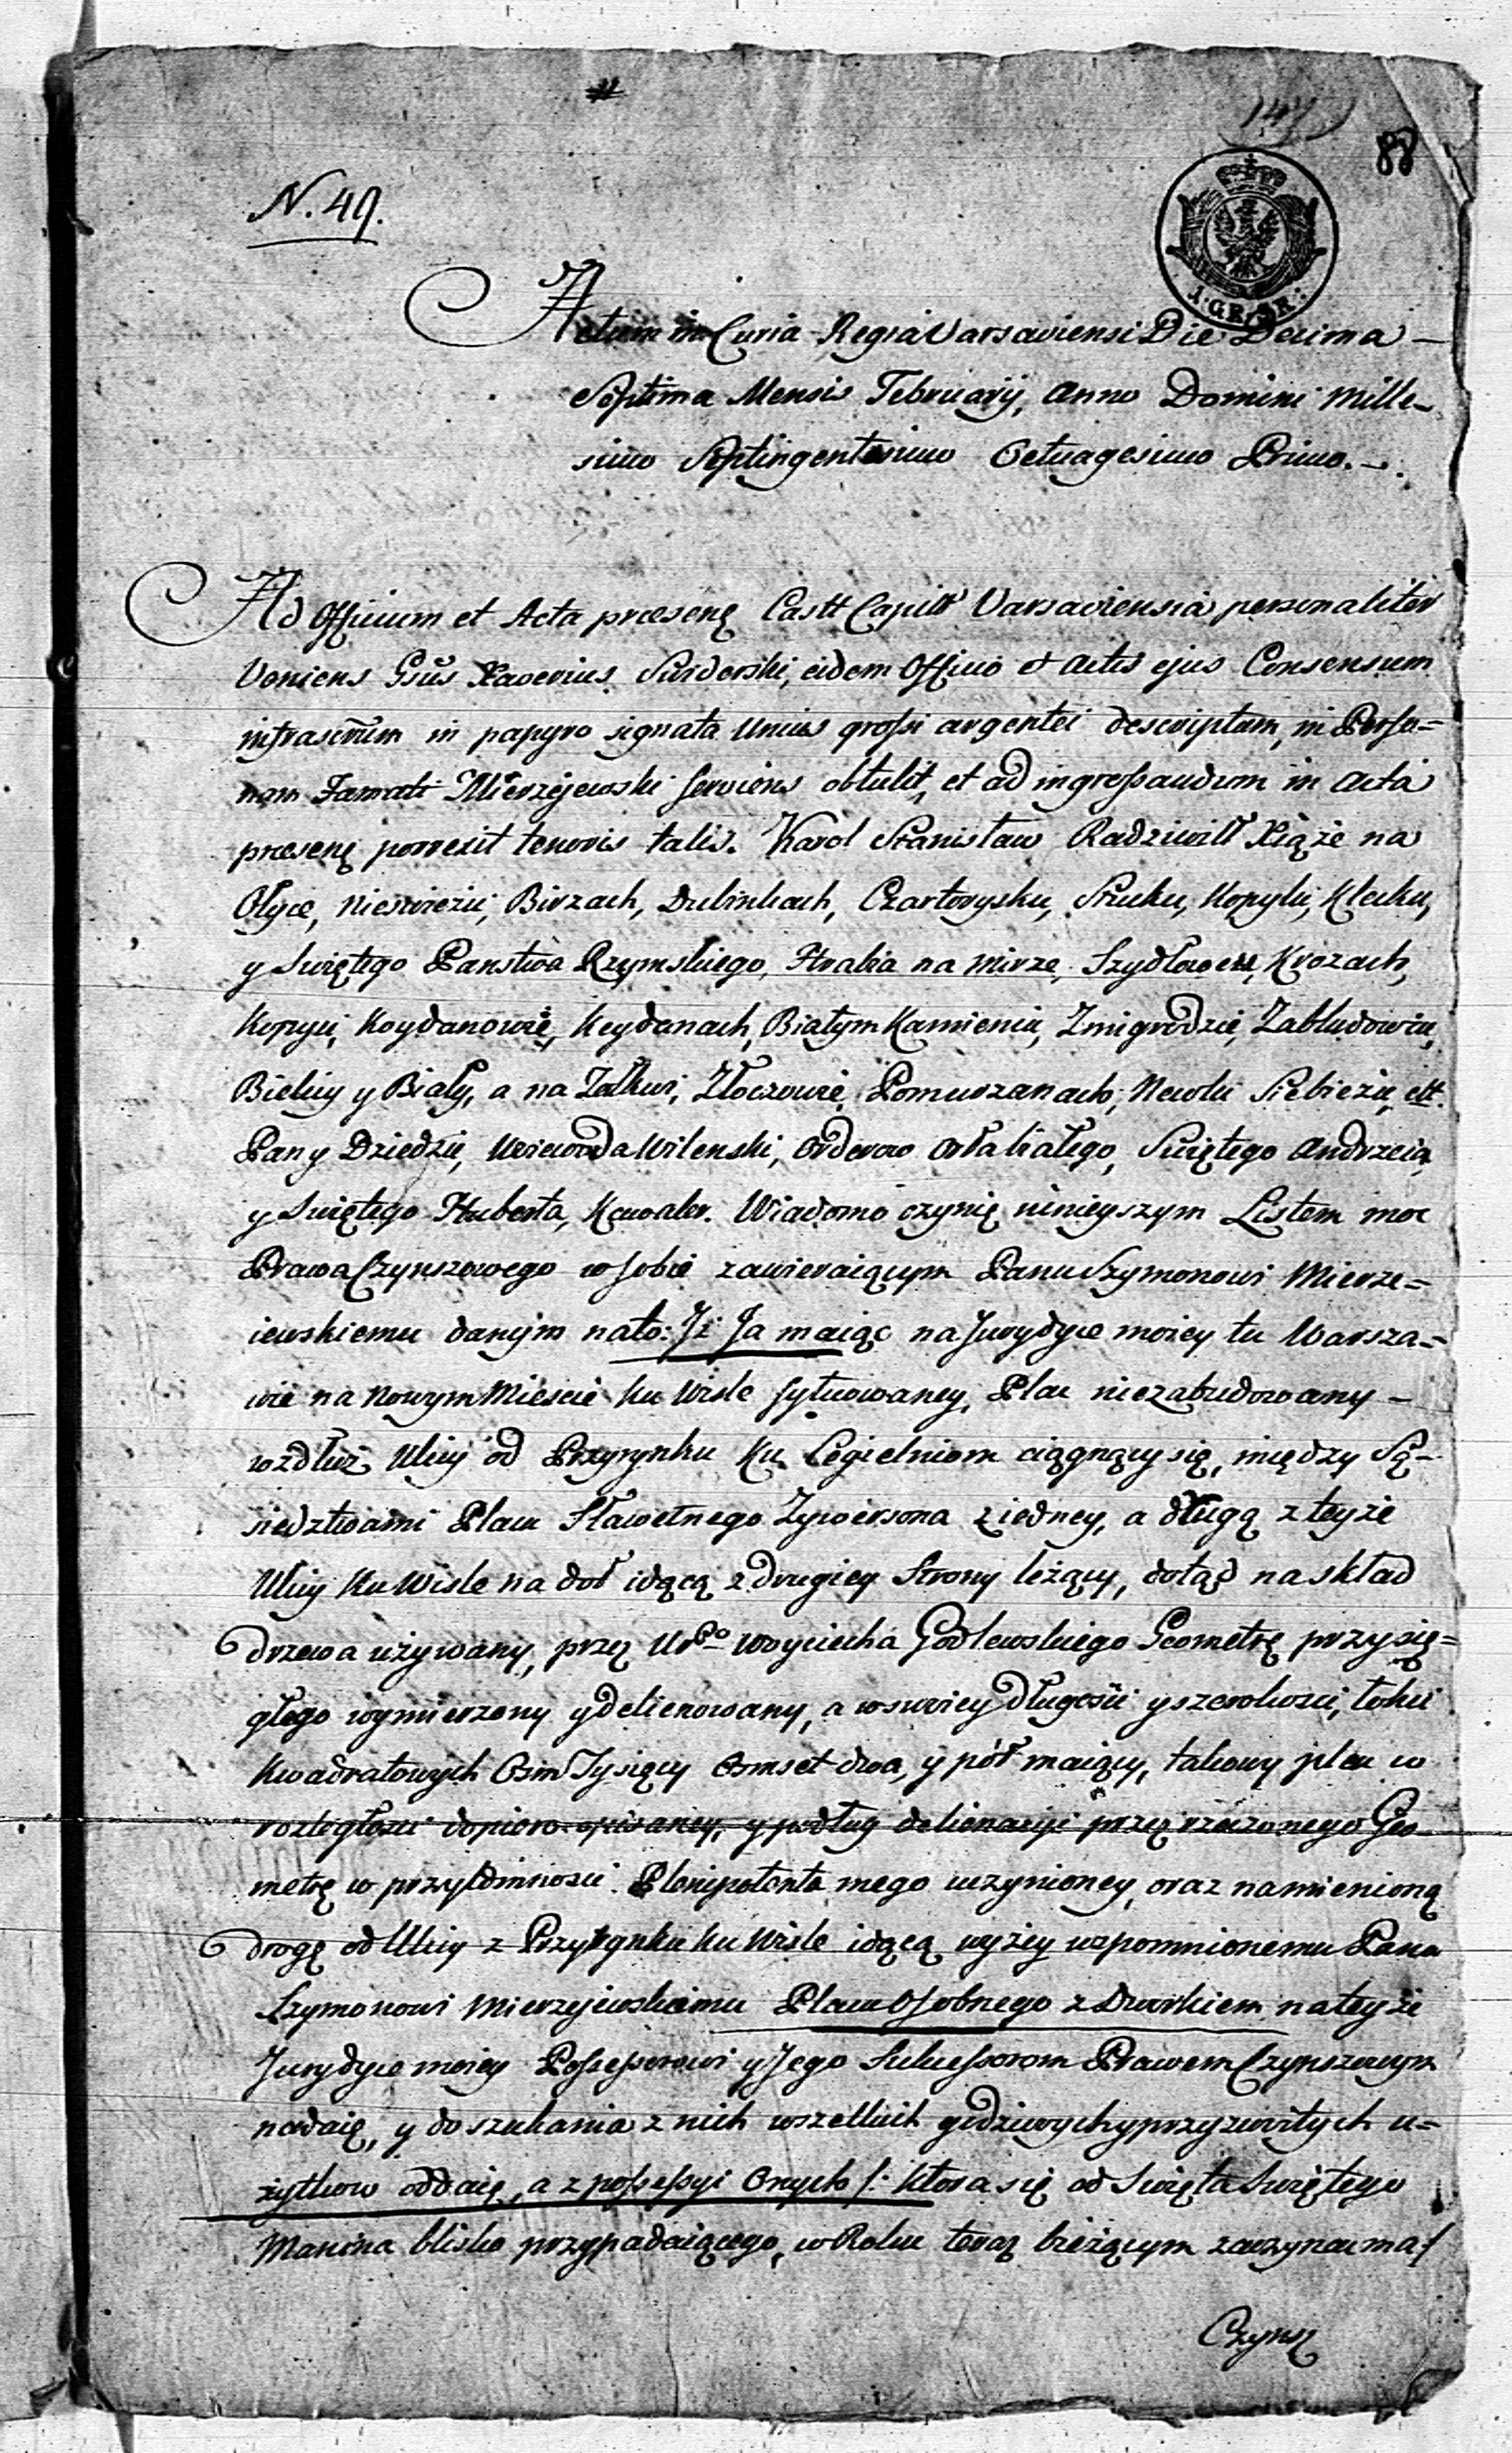 147
88
N. 49.
1. GR. SR.
Actum in Curia Regia Varsaviensi Die Decima
Septima Mensis February, Anno Domini Mille-
simo Septingentesimo Octuagesimo Primo.
Ad Officium et Acta præsenę Castt Capitt Varsaviensia personaliter
Veniens Gsus Xaverius Swiderski, eidem Officio et Actis ejus Consensum
infrascrum in papyro signata unius grossi argentei descriptum, in Perso=
nam Famati Mierzejewski serviens obtulit, et ad ingrossandum in Acta
præsenę porrexit tenoris talis. Karol Stanisław Radziwiłł Xiąże na
Ołyce, Nieswieżu, Birzach, Dubinkach, Czartorysku, Słucku, Kopylu, Klecku,
y Swiętego Panstwa Rzymskiego, Hrabia na Mirze, Szydłowcu, Krozach,
Kopysi, Koydanowie, Keydanach, Białym Kamieniu, Zmigrodzie, Zabłudowiu,
Bielicy y Biały, a na Zołkwi, Złoczowie, Pomorzanach, Newlu Siebieżu, ett.
Pan y Dziedzic, Woiewoda Wilenski, Orderow Orła białego, Swiętego Andrzeia,
y Swiętego Huberta, Kawaler. Wiadomo czynię ninieyszym Listem moc
Prawa Czynszowego w sobie zawieraiącym Panu Szymonowi Mierze=
iewskiemu danym na to: Iż Ja maiąc na Jurydyce moiey tu w Warsza=
wie na Nowym Mieście ku Wisle sytuowaney, Plac niezabudowany
wzdłuż Ulicy od Przyrynku ku Cegielniom ciągnący się, między Są=
siedztwami Placu Sławetnego Zywersona z iedney, a długą z teyże
Ulicy ku Wisle na doł idącą z drugiey Strony leżący, dotąd na skład
drzewa używany, przez Urgo Woyciecha Godlewskiego Geometrę przysię=
głego wymierzony y delienowany, a w swoiey długości y szerokości, łokci
Kwadratowych Osim Tysięcy Osmset dwa, y poł maiący, takowy plac w
rozległości dopiero opisaney, y podług delienacyi przez rzeczonego Geo-
metrę w przytomnosci Plenipotenta mego uczynioney, oraz namienioną
drogę od Ulicy z Przyrynku ku Wisle idącą wyżey wspomnionemu Panu
Szymonowi Mierzejewskiemu Placu Osobnego z Dworkiem na teyże
Jurydyce moiey Possessorowi y Jego Sukcessorom Prawem Czynszowym
nadaię, y do szukania z nich wszelkich godziwych y przyzwoitych u=
żytkow oddaię, a z possessyi Onych /: ktora się od Swięta Swiętego
Marcina blisko przypadaiącego, w Roku teraz bieżącym zaczynać ma :/
Czynsz